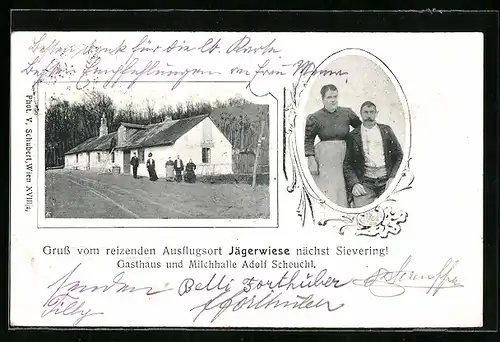 Besten Dank für die lb. Karte
besten Empfehlungen an Frau Mama
Phot. V. Schubert, Wien XVIII/1.
Gruß vom reizenden Ausflugsort Jägerwiese nächst Sievering!
Gasthaus und Milchhalle Adolf Scheuchl.
senden Belli Forthuber
Tilly Forthuber